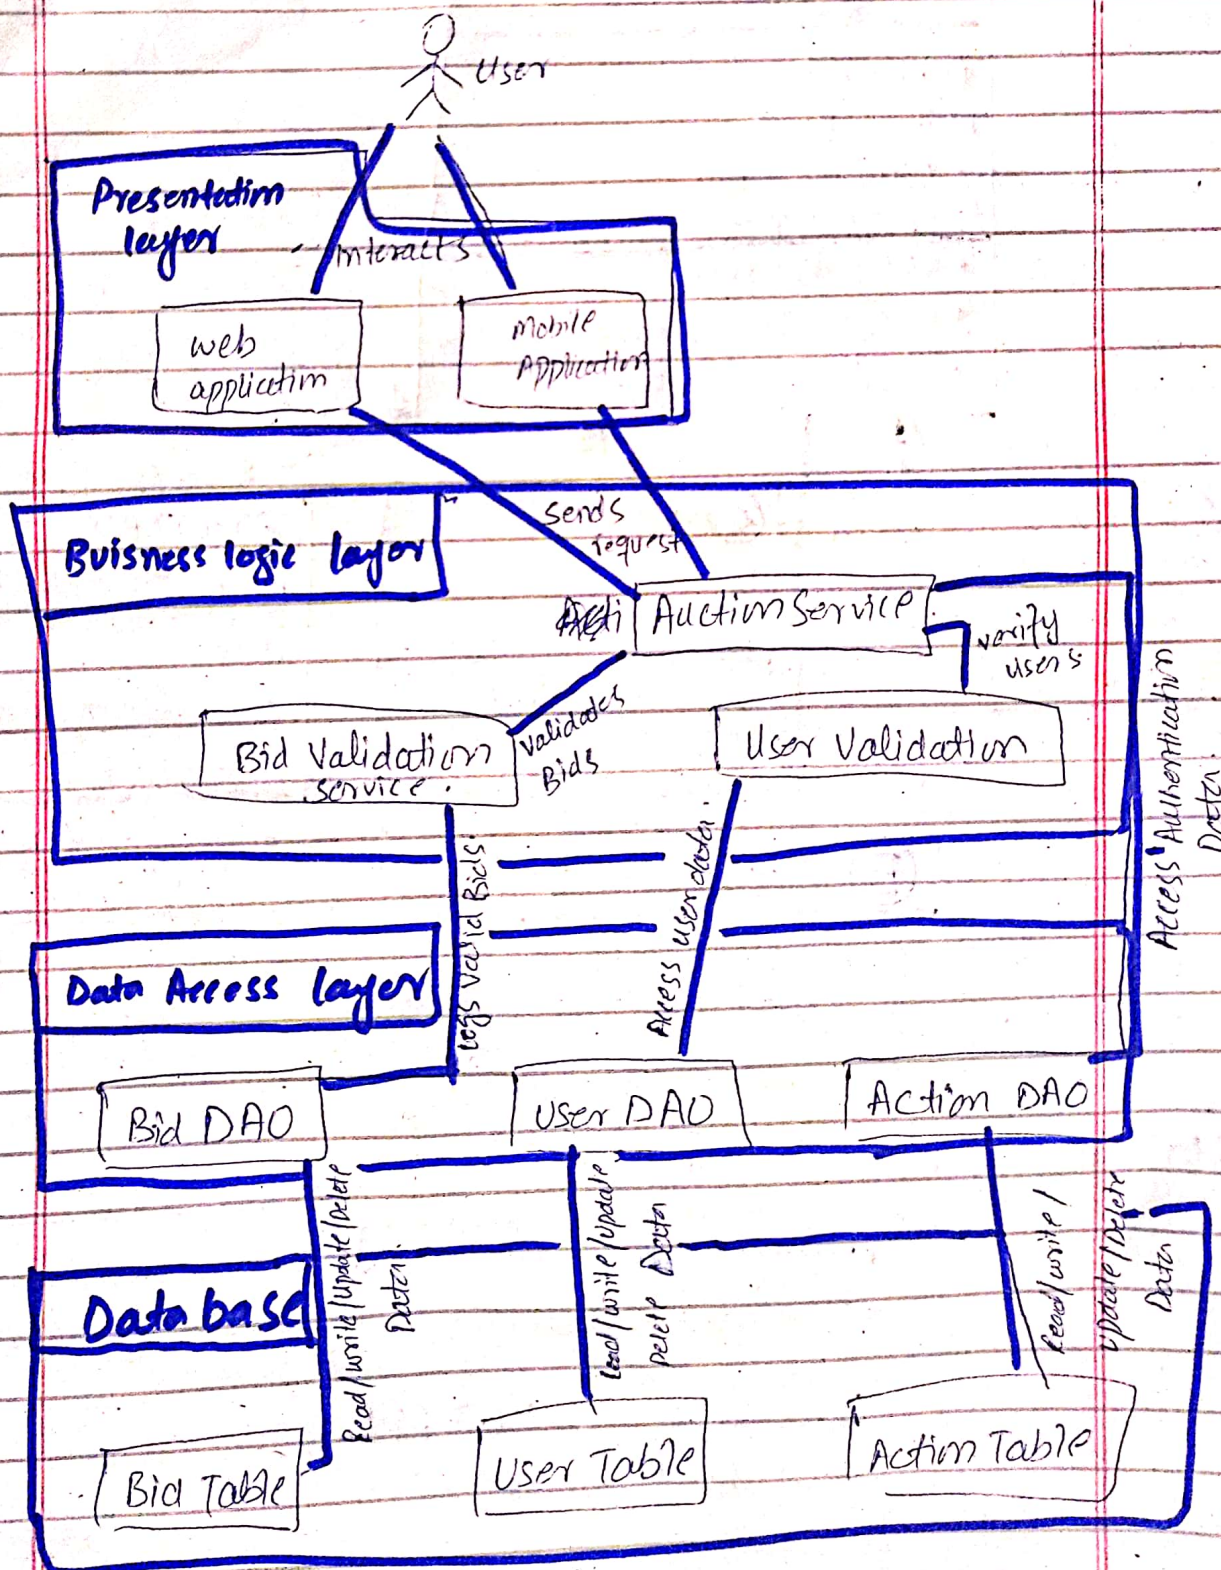 User
Presentation
layer
interacts
web
application
Mobile
Application
sends
request
Buisness logic layer
Auction Service
verify
users
validates
Bids
Bid Validation
service.
User Validation
Access Authentication
Data
Logs Valid Bids
Access user data
Data Access layer
Bid DAO
User DAO
Action DAO
Read/write/Update/Delete
Data
Read/write/update
Delete Data
Read/write/
update/Delete
Data
Database
Bid Table
User Table
Action Table